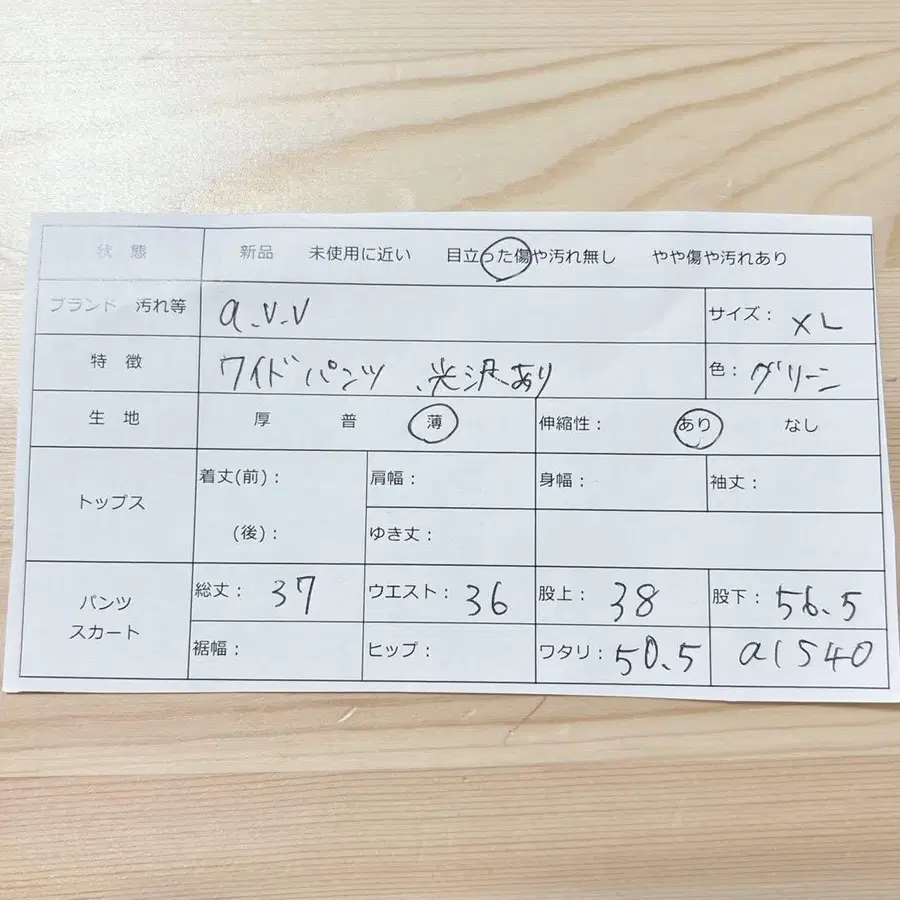 状 態 新品 未使用に近い 目立った傷や汚れ無し やや傷や汚れあり
ブランド 汚れ等 a.v.v サイズ： XL
特 徴 ワイドパンツ、光沢あり 色： グリーン
生 地 厚 普 薄 伸縮性： あり なし
トップス 着丈(前)： 肩幅： 身幅： 袖丈：
(後)： ゆき丈：
パンツ スカート 総丈： 37 ウエスト： 36 股上： 38 股下： 56.5
裾幅： ヒップ： ワタリ： 50.5 a1540